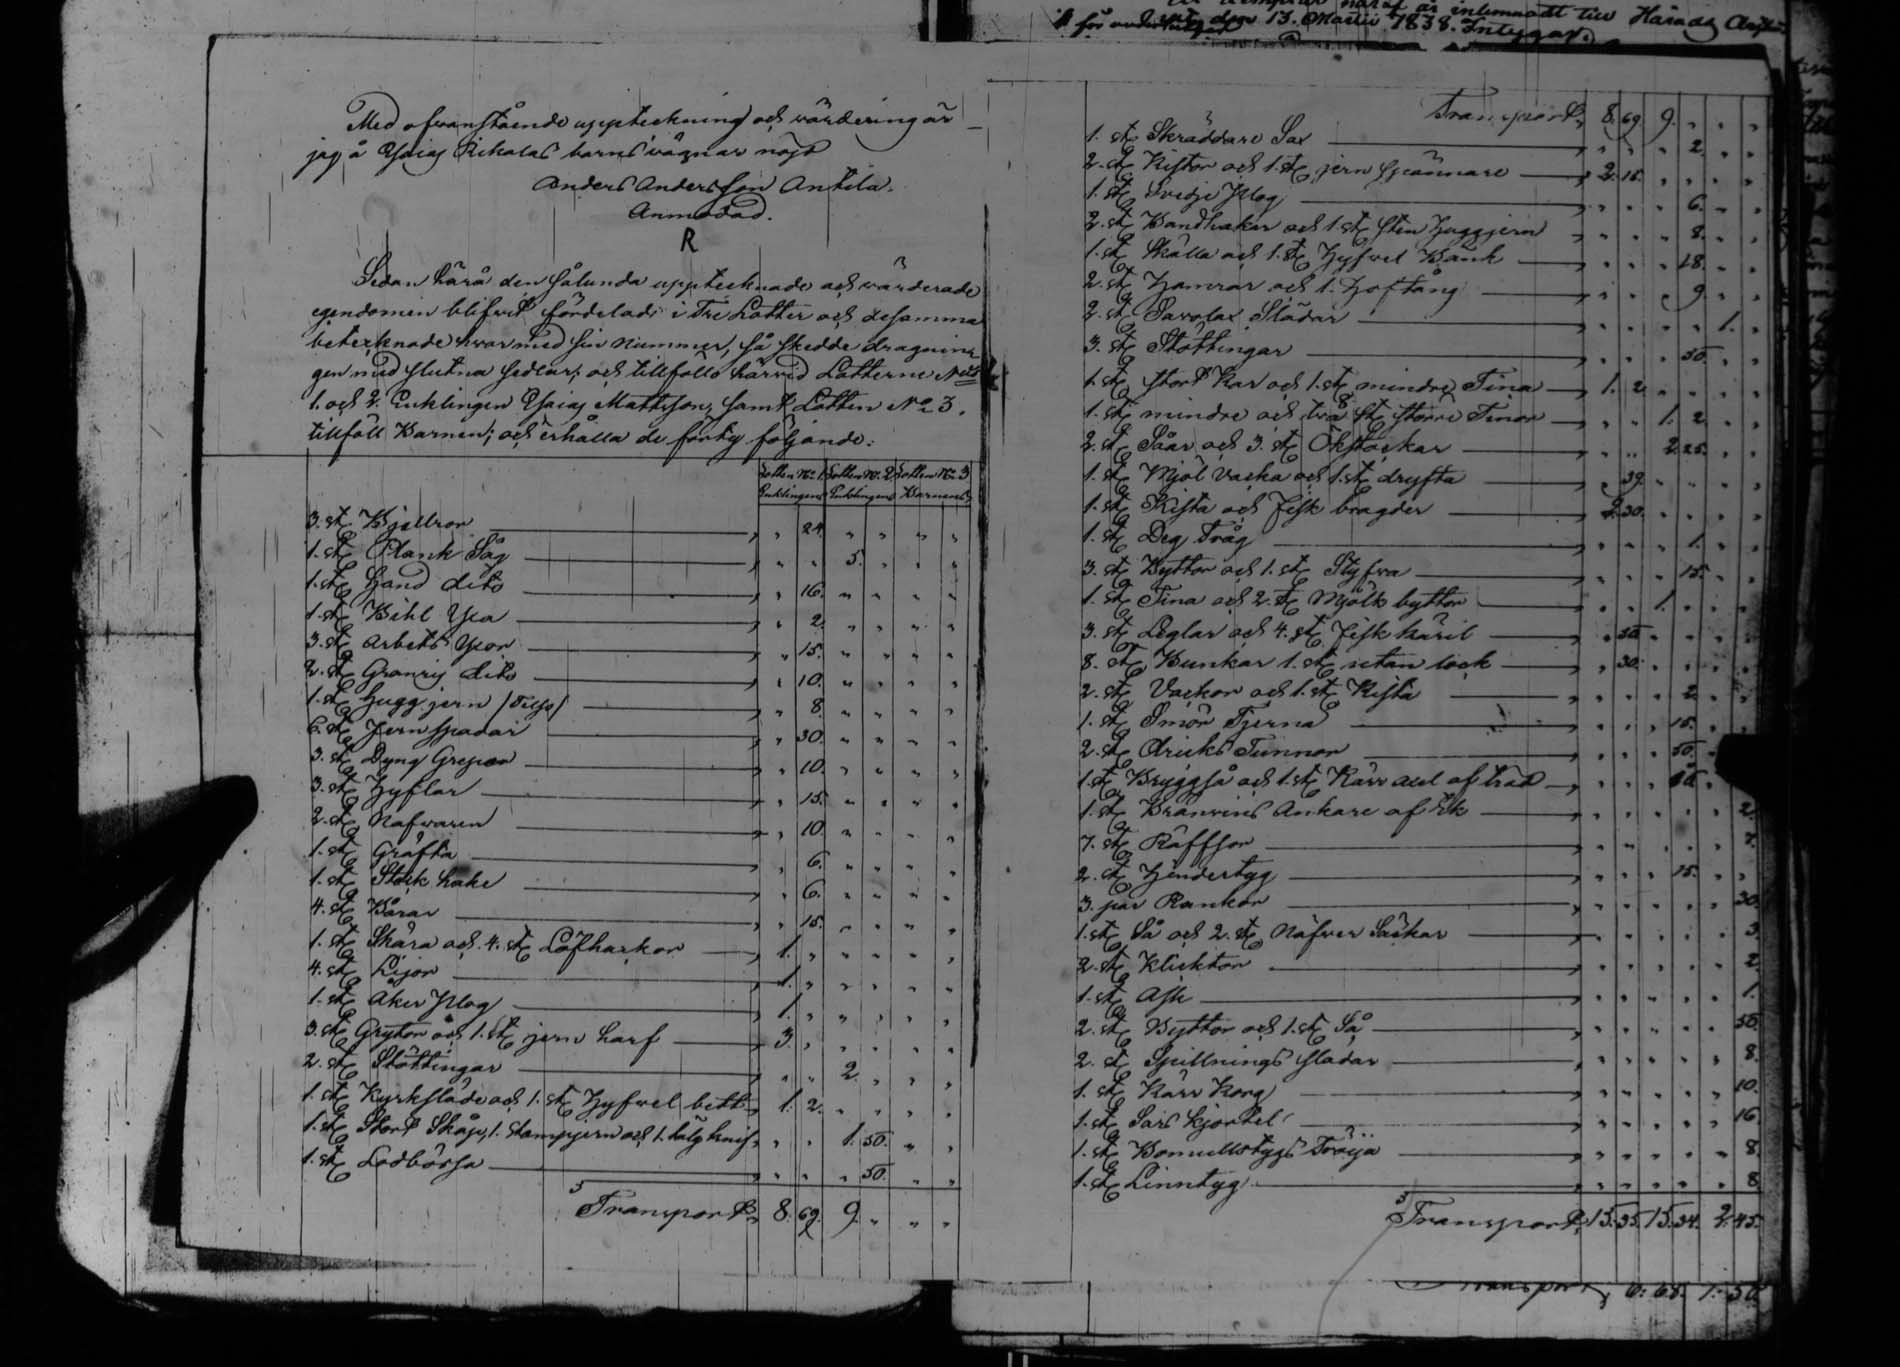 Med ofvanstående uppteckning och värdering är
jag å Esaias Rekolas barns vägnar nögd
Anders Andersson Antila.
Anmodad.
R
Sedan härå den sålunda upptecknade och värderade
egendomen blifvit fördelad i Tre Lotter och desamma
betecknade hvar med sin Nummer, så skedde dragnin-
gen med slutna sedlar; och tillföllo härvid Lotterne N:o
1. och 2. Enklingen Esaias Mattsson, samt Lotten N:o 3.
tillföll Barnen; och erhålla de förty följande:
Lotten N:o 1. Lotten N:o 2. Lotten N:o 3
Enklingens Enklingens Barnens
3. st Bjellror 24.
1. st Plank Såg 5.
1. st Hand dito 16.
1. st Bihl Yxa 2.
3. st arbets Yxor 15.
2. st Granris dito 10.
1. st Hugg jern 8.
6. st Jern spadar 30.
3. st Dyng Grepar 10.
3. st Hyflar 15.
2. st Nafvaren 10.
1. st Gräfta 6.
1. st Stock hake 6.
4. st Bårar 15.
1. st Skära och 4. st Löfharkor 1.
4. st Lijor 1.
1. st Åker Plog 1.
3. st Grytor och 1. st jern harf 3.
2. st Stöttingar 2.
1. st Kyrksläde och 1. st Hyfvel bett 1. 2.
1. st Stort Skåp, 1. stampjern och 1. tälg knif 1. 50.
1. st Lodbössa 50.
Transport 8. 69. 9.
Transport 8. 69. 9.
1. st Skräddare Sax 2.
2. st Kistor och 1. st jern spännare 2. 15.
1. st Svedje Plog 6.
2. st Bandhakar och 1. st sten Huggjern 8.
1. st Skålla och 1. st Hyfvel Bänk 18.
2. st Hamrar och 1. Hoftång 9.
2. st Savolax Slädar 1.
3. st Stöttingar 50.
1. st stort Kar och 1. st mindre Tina 1. 2.
1. st mindre och två st större Tinor 1. 2.
2. st Såar och 3. st Ökstockar 2. 25.
1. st Mjöl Vacka och 1. st dryfta 39.
1. st Kista och Fisk bragder 2. 30.
1. st Deg Tråg 1.
3. st Byttor och 1. st Styfva 15.
1. st Tina och 2. st Mjölk byttor 1.
3. st Leglar och 4. st Fisk käril 50.
8. st Bunkar 1. st utan lock 30.
2. st Vackor och 1. st Kista 2.
1. st Smör Tjerna 15.
2. st Dricks Tunnor 50.
1. st Bryggså och 1. st Kärr axel af träd
1. st Bränvins Ankare af Ek 2.
7. st Räfssor 7.
2. st Hindertyg 15.
3. par Rankor 30.
1. st Så och 2. st Näfver Säckar 3.
2. st Klicktor 2.
1. st Ask 1.
2. st Byttor och 1. st Så 50.
2. st Spillnings sladar 8.
1. st Kärr Korg 10.
1. st Sars kjortel 16.
1. st Bomullstygs Tröija 8.
1. st Linntyg 8
Transport 15. 35. 15. 34. 2. 45.
Transport 6. 68. 7. 50.
inlemnadt till Härads
den 13. Martii 1838. Intygar.